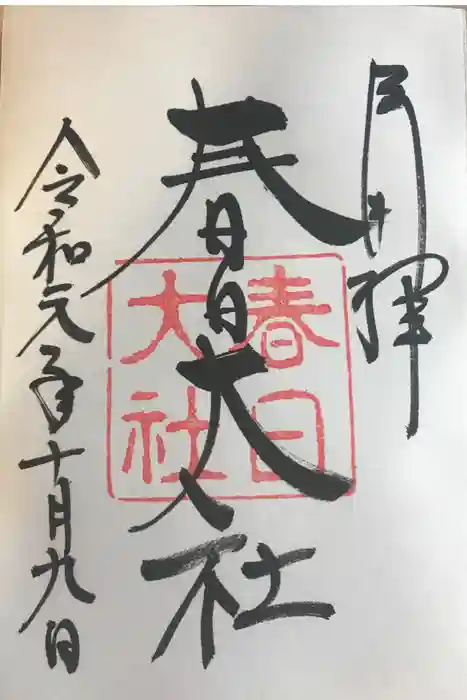 奉拝
春日大社
春日
大社
令和元年十月九日